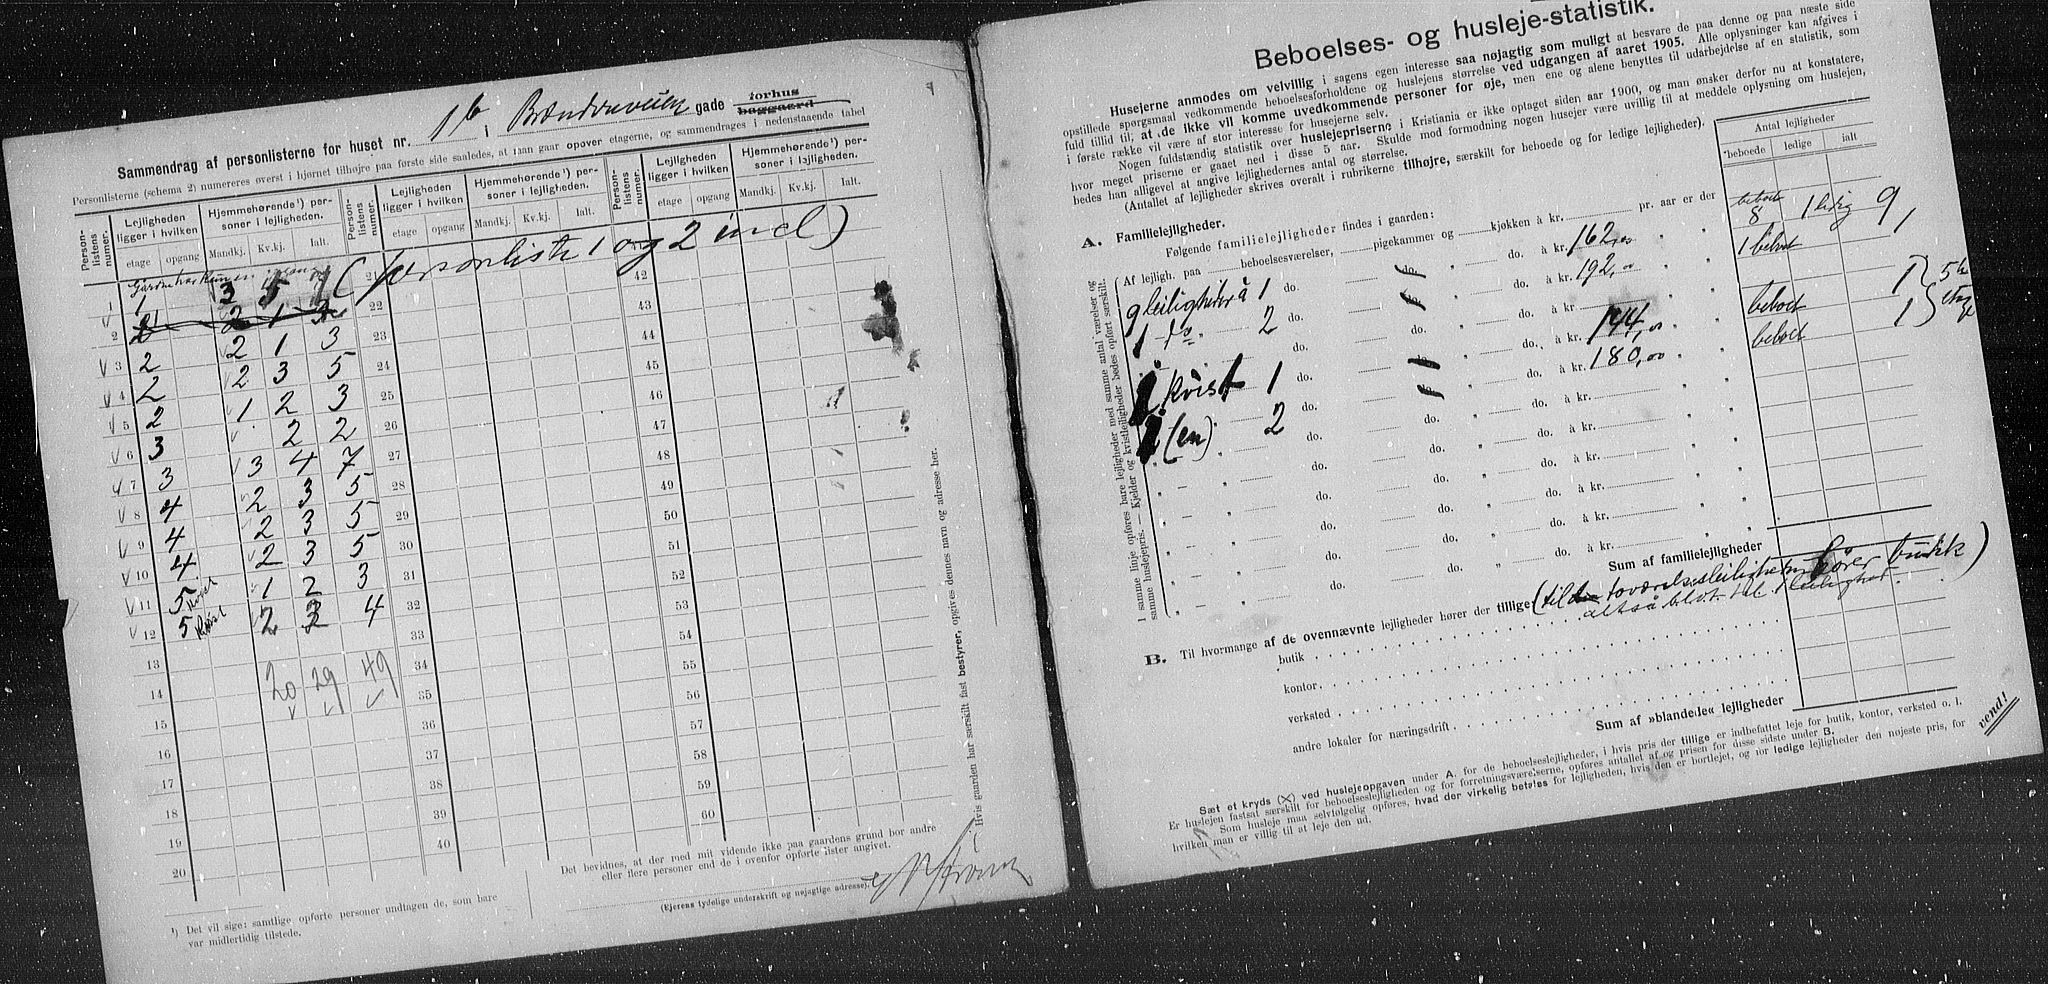 Sammendrag af personlisterne for huset nr. 1b i gade forhus baggaard
Personlisterne (schema 2) numereres øverst i hjørnet tilhøjre paa første side saaledes, at man gaar opover etagerne, og sammendrages i nedenstaaende tabel
Person-listens numer. Lejligheden ligger i hvilken Hjemmehørende¹) personer i lejligheden. Person-listens numer. Lejligheden ligger i hvilken Hjemmehørende¹) personer i lejligheden. Person-listens numer. Lejligheden ligger i hvilken Hjemmehørende¹) personer i lejligheden.
etage opgang Mandkj. Kv.kj. Ialt. etage opgang Mandkj. Kv.kj. Ialt. etage opgang Mandkj. Kv.kj. Ialt.
(personliste 1 og 2 ind)
1 1 3 21
2 2 1 3 22 42
3 2 2 1 3 23 43
4 2 2 3 5 24 44
5 2 1 2 3 25 45
6 3 2 2 26 46
7 3 3 4 7 27 47
8 4 2 3 5 28 48
9 4 2 3 5 29 49
10 4 2 3 5 30 50
11 5 Kvist 1 2 3 31 51
12 5 Kvist 2 2 4 32 52
13 33 53
14 20 29 49 34 54
15 35 55
16 36 56
17 37 57
18 38 58
19 39 59
20 40 60
Hvis gaarden har særskilt fast bestyrer, opgives dennes navn og adresse her.
Det bevidnes, at der med mit vidende ikke paa gaardens grund bor andre
eller flere personer end de i ovenfor opførte lister angivet.
(Ejerens tydelige underskrift og nøjagtige adresse).
¹) Det vil sige: samtlige opførte personer undtagen de, som bare
var midlertidig tilstede.
Beboelses- og husleje-statistik.
Husejerne anmodes om velvillig i sagens egen interesse saa nøjagtig som muligt at besvare de paa denne og paa næste side
opstillede spørgsmaal vedkommende beboelsesforholdene og huslejens størrelse ved udgangen af aaret 1905. Alle oplysninger kan afgives i
fuld tillid til, at de ikke vil komme uvedkommende personer for øje, men ene og alene benyttes til udarbejdelse af en statistik, som
i første række vil være af stor interesse for husejerne selv.
Nogen fuldstændig statistik over huslejepriserne i Kristiania er ikke optaget siden aar 1900, og man ønsker derfor nu at konstatere,
hvor meget priserne er gaaet ned i disse 5 aar. Skulde mod formodning nogen husejer være uvillig til at meddele oplysning om huslejen,
bedes han alligevel at angive lejlighedernes antal og størrelse.
(Antallet af lejligheder skrives overalt i rubrikerne tilhøjre, særskilt for beboede og for ledige lejligheder).
Antal lejligheder
beboede ledige ialt
A. Familielejligheder.
Følgende familielejligheder findes i gaarden:
Af lejligh. paa beboelsesværelser, pigekammer og kjøkken à kr. pr. aar er der
9 leiligheder à 1 do. do. do. à kr. 162,00 beboet 8 1 ledig 9,
1 do 2 do. do. à kr. 192,00 1 beboet
do. do. do. à kr.
1 kvist 1 do. do. à kr. 144,00 beboet 1 } 5te
1 (en) 2 do. do. à kr. 180,00 beboet 1 } etage
do. do. do. à kr.
do. do. do. à kr.
do. do. do. à kr.
do. do. do. à kr.
do. do. do. à kr.
I samme linje opføres bare lejligheder med samme antal værelser og
samme huslejepris. — Kjelder og kvistlejligheder bedes opført særskilt.
Sum af familielejligheder
(til den toværelsesleilighed hører butikk)
altså blot til 1 leilighet.
B. Til hvormange af de ovennævnte lejligheder hører der tillige:
butik
kontor
verksted
andre lokaler for næringsdrift
Sum af »blandede« lejligheder
Sæt et kryds (X) ved huslejeopgaven under A. for de beboelseslejligheder, i hvis pris der tillige er indbefattet leje for butik, kontor, verksted o. l.
Er huslejen fastsat særskilt for beboelseslejligheden og for forretningsværelserne, opføres antallet af og prisen for disse sidste under B.
Som husleje maa selvfølgelig opføres, hvad der virkelig betales for lejligheden, hvis den er bortlejet, og for ledige lejligheder den nøjeste pris, for
hvilken man er villig til at leje den ud.
vend!